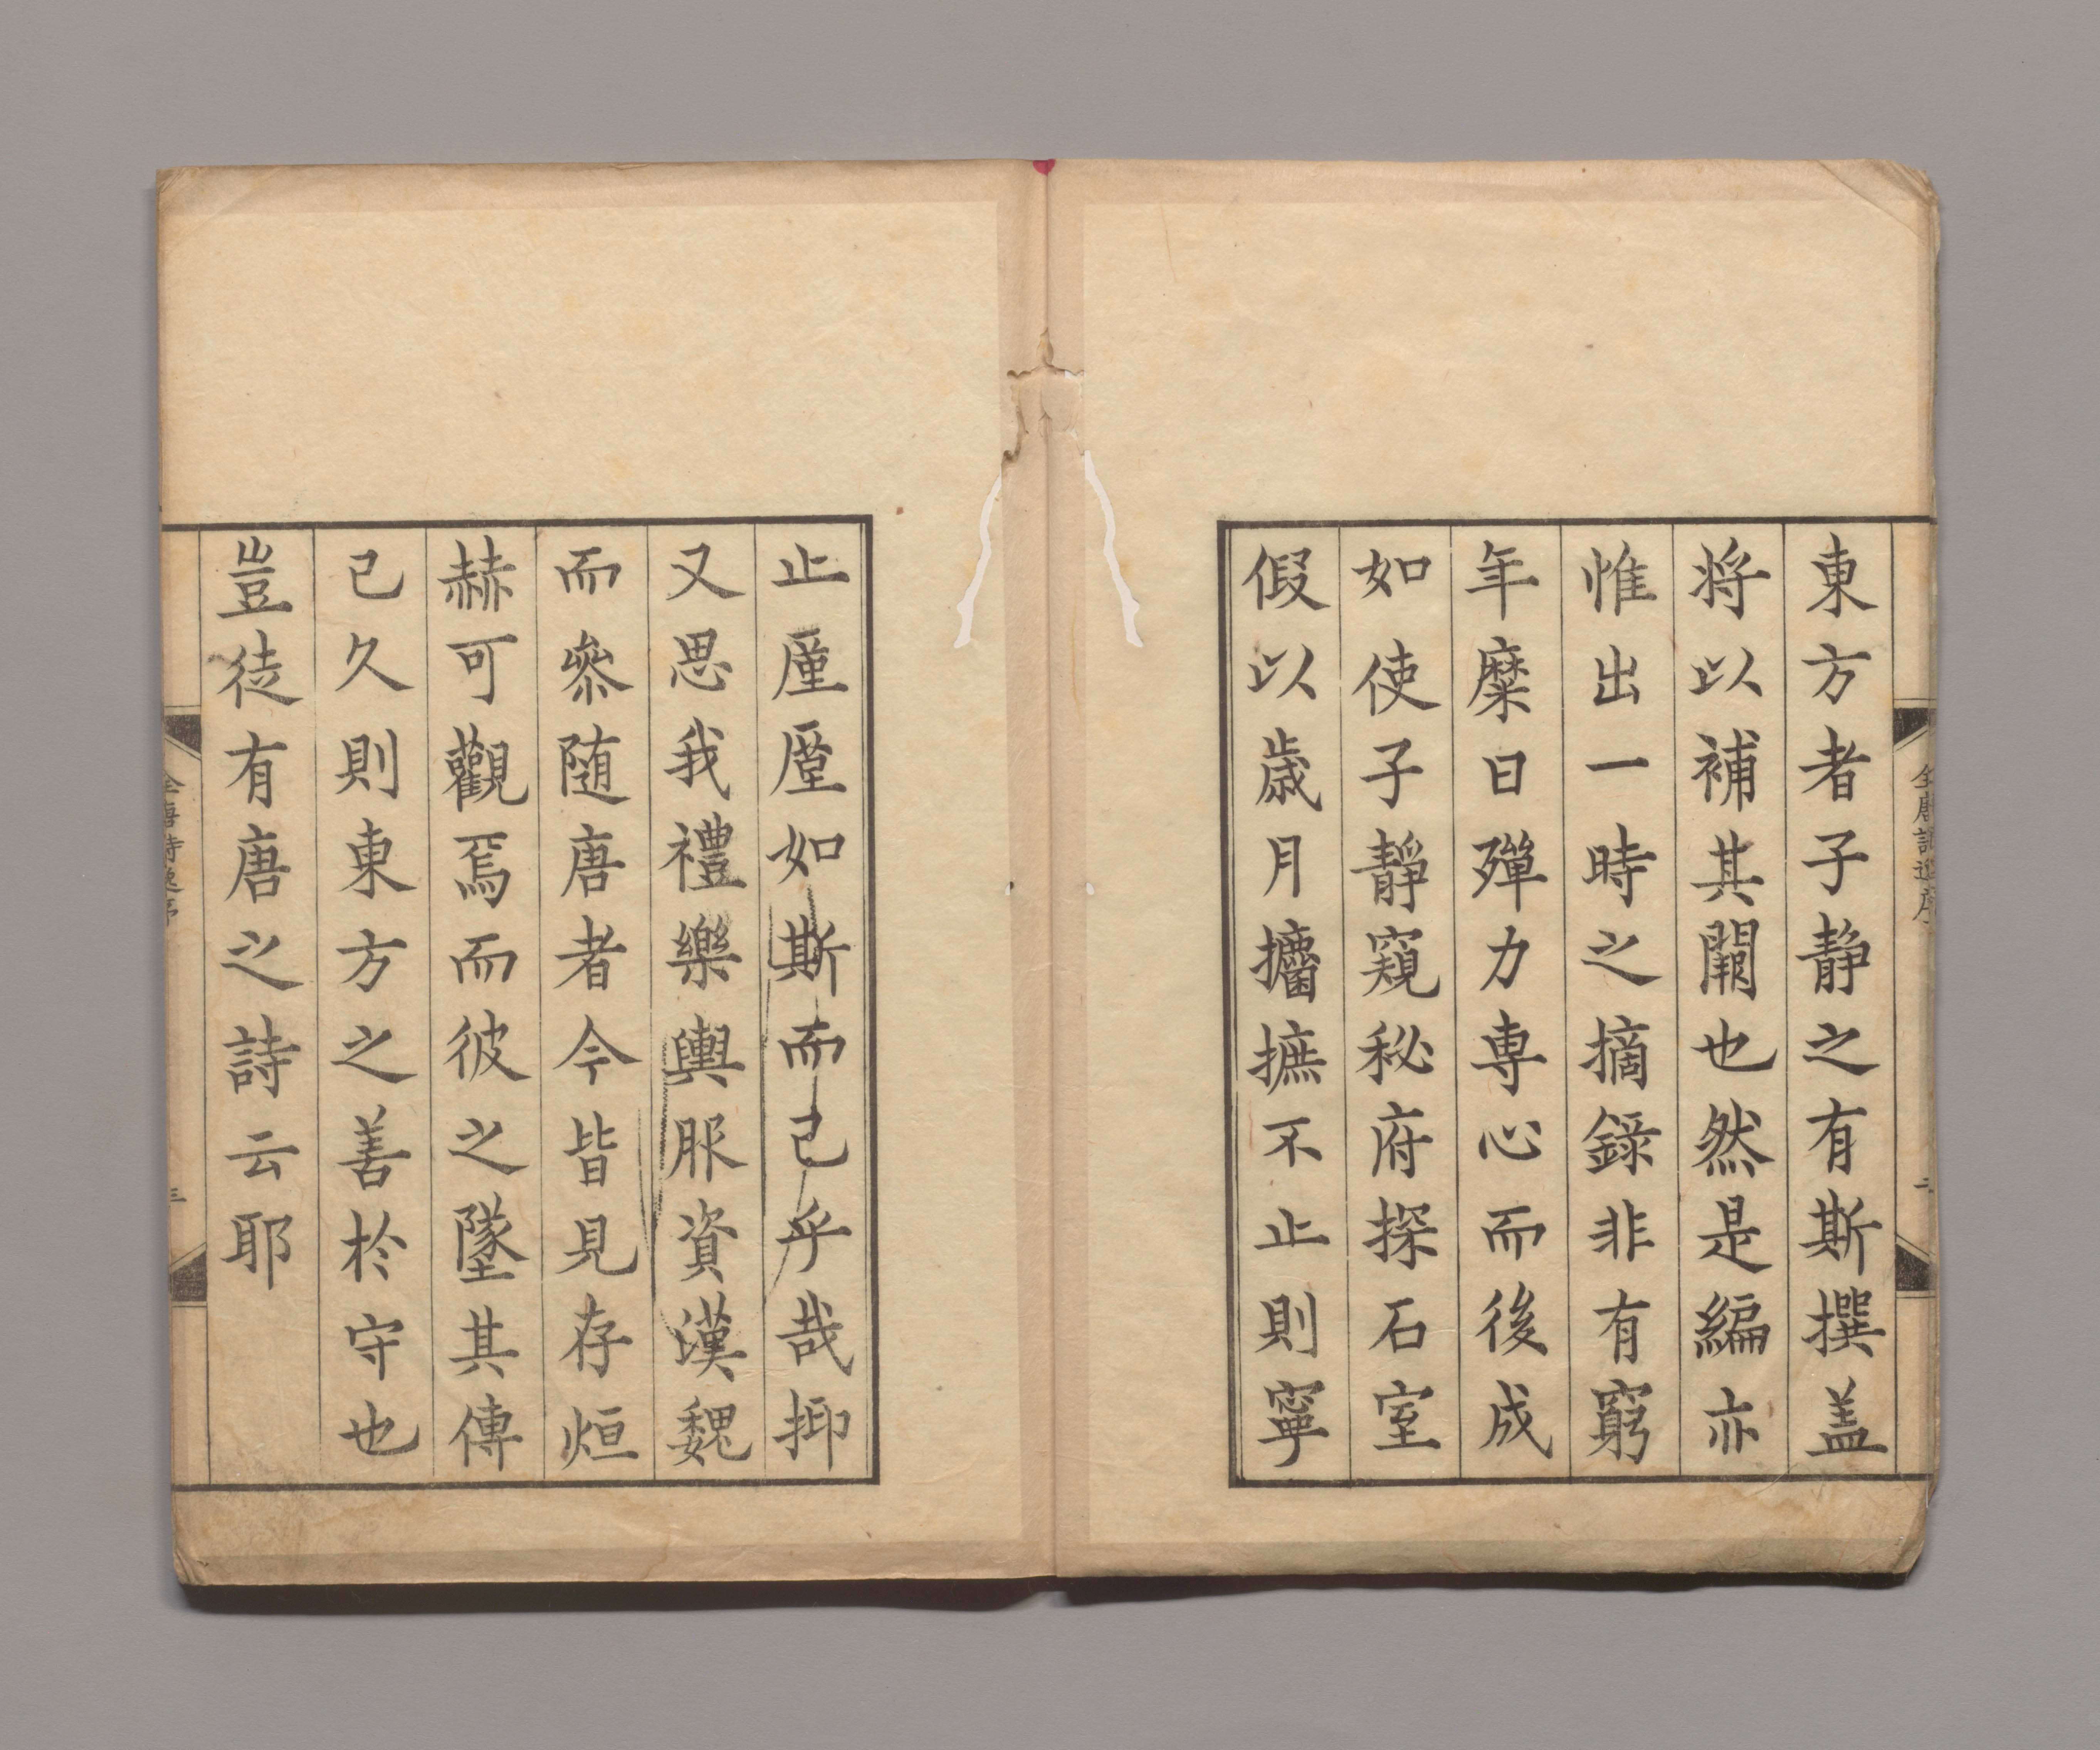 全唐詩逸序
二
東方者子静之有斯撰盖
将以補其闕也然是編亦
惟出一時之摘錄非有窮
年糜日殫力専心而後成
如使子靜窺秘府探石室
假以歳月攟摭不止則寧
止廑廑如斯而己乎哉抑
又思我禮樂輿服資漢魏
而叅随唐者今皆見存烜
赫可觀焉而彼之墜其傳
已久則東方之善於守也
豈徒有唐之詩云耶
全唐詩逸序
三